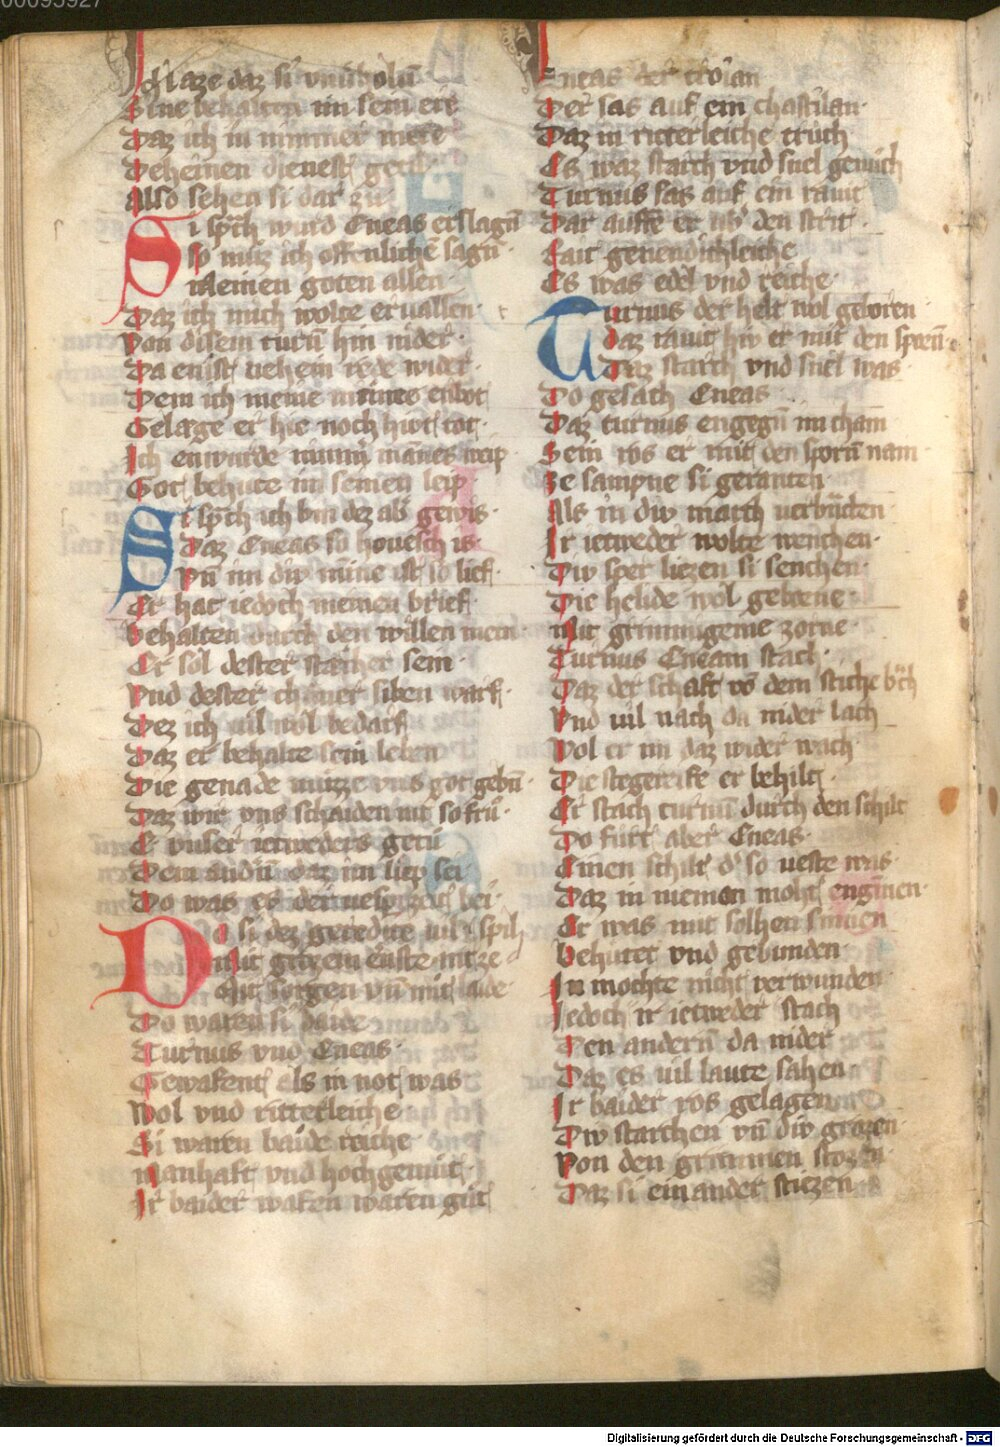 00095927
Ich lazze daz si vnuͤrholn
Sine behalten im sein ere
Daz ich in nimmer mere
Deheinen dienest getuͦ
Also sehen si dar zuͦ
Si sp̄ch wird Eneas erslagn̄
So muͦz ich offenlichē sagn̄
Meinen goten allen
Daz ich mich wolte ervallen
Von disem turn̄ hin nider
Da enist dehein rede wider
Dem ich meine minne enbot
Gelæge er hie noch hivt tot
Ich enwurde nim̄ mānes weip
Got behute im seinen leip
Si sp̄ch ich bin dez ab̄ gewis
Daz Eneas so hovesch is
Vn̄ im div mīne ist so lieb
Er hat iedoch meinen brief
Behalten durch den willen mein
Er sol dester stæther sein
Vnd dester chuͤner siben warf
Dez ich vil wol bedarf
Daz er behalte sein leben
Die genade muzze vns got gebn̄
Daz wir vns schaiden nit so fruͦ
E vnser ietweders getuͦ
Dem andn̄ daz im liep sei
Do was es der vesperzeit bei
Do si dez geredite vil spil
Mit
Mit sorgen vn̄ mit laide
Do waren si baide
Turnus vnd Eneas
Gewafent als in not was
Wol vnd ritterleiche
Si waren baide reiche
manhaft vnd hochgemuͤt
Ir baider wafen waren guͦt
Eneas der troian
Der sas auf ein chastilan
Daz in ritterleiche truͦch
Es waz starch vnd snel genuͦch
Turnus sas auf ein ravit
Dar auffe er ub̄ den strit
Rait genendichleiche
Es was edel vnd reiche
Turnus der helt wol geboren
Daz ravit hiv er mit den sporn̄
Daz starch vnd snel was
Do gesach Eneas
Daz turnus engegn̄ im cham
Sein ros er mit den sporn̄ nam
Ze sampne si geranten
Als in div march verbunden
Ir ietweder wolte wenchen
Div sper liezen si senchen
Die helide wol geborne
Mit grimmigeme zorne
Turnus Eneam stach
Daz der schaft vō dem stiche b̄ch
Vnd vil nach da nider lach
Wol er im daz wider wach
Die stegereife er behilt
Er stach turnū durch den schilt
Do furt aber Eneas
Einen schilt d̄ so veste was
Daz in nieman moht engīnen
Er was mit solhen sinnen
Behutet vnd gebunden
In mochte nicht verwunden
Iedoch ir ietweder stach
Den andern̄ da nider
Daz es vil laute sahen
Ir baider ros gelagen
Div starchen vn̄ div grozen
Von den grimmen stozzen
Daz si ein ander stiezen
Digitalisierung gefördert durch die Deutsche Forschungsgemeinschaft - DFG